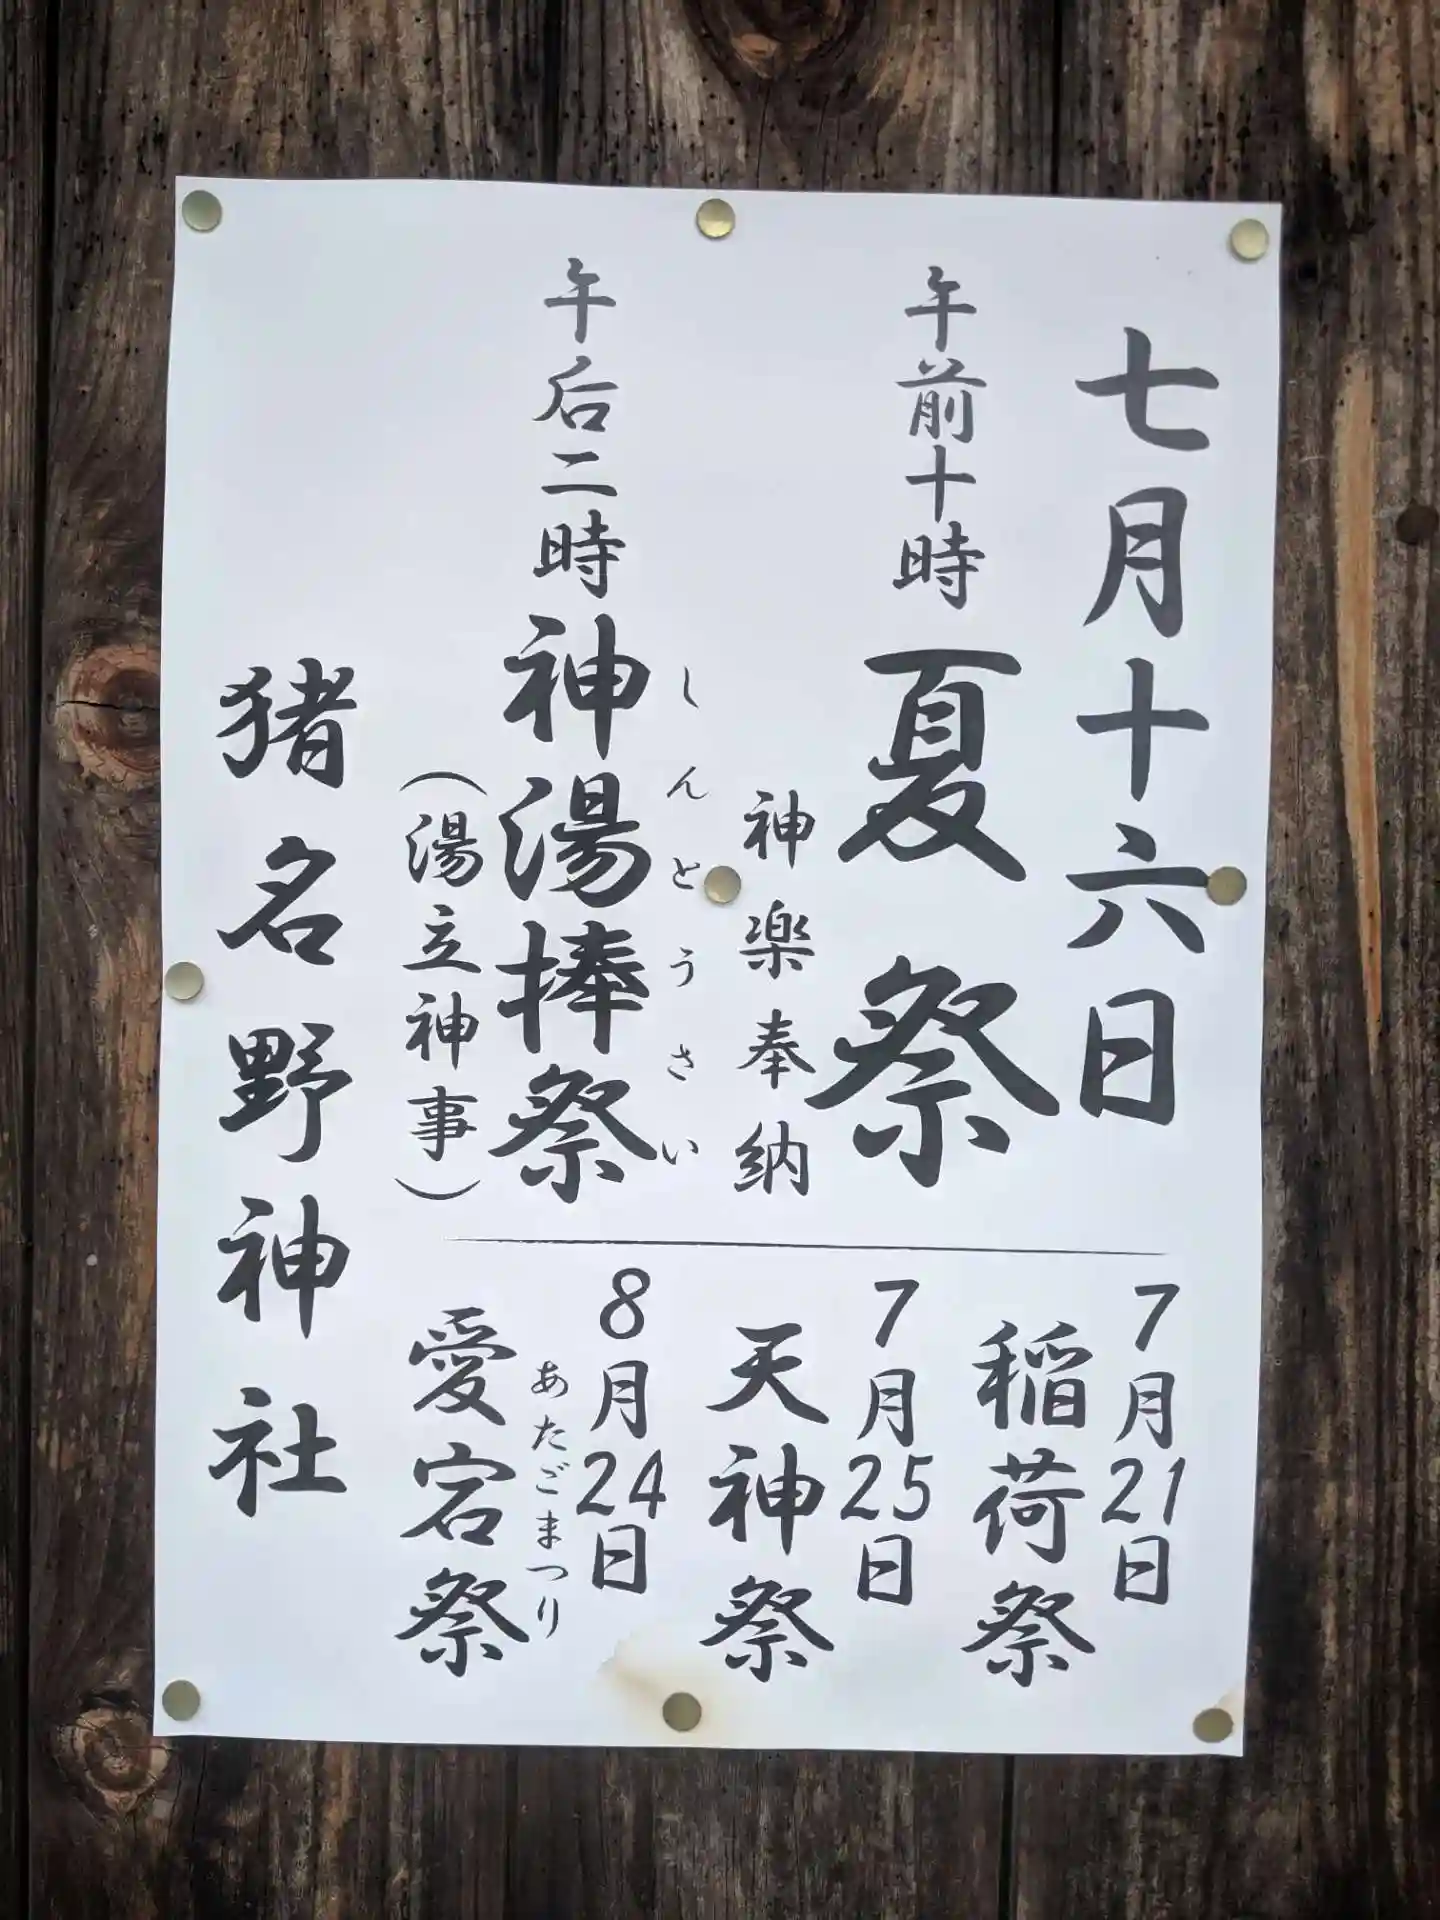 七月十六日
午前十時 夏祭
神楽奉納
しんとうさい
午后二時 神湯捧祭
（湯立神事）
7月21日
稲荷祭
7月25日
天神祭
8月24日
あたごまつり
愛宕祭
猪名野神社